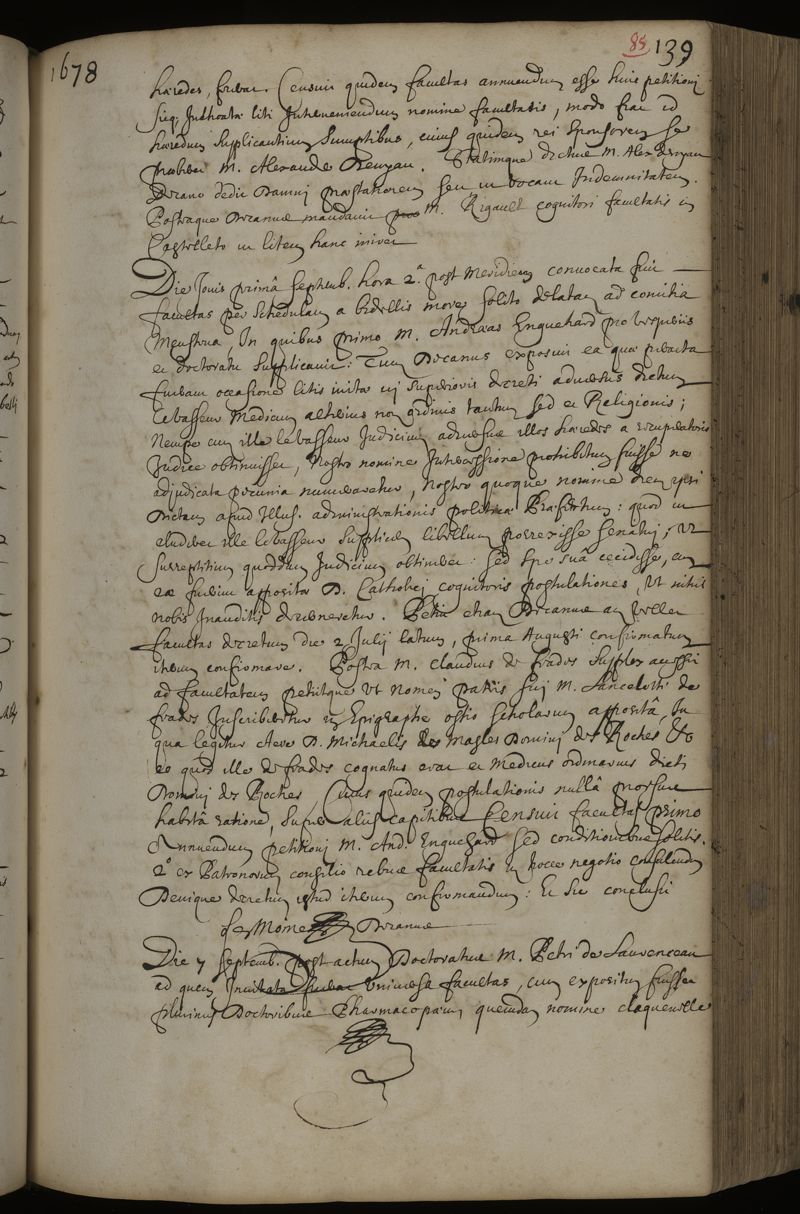 1678
85 139
hæredes, . Censuit quidem facultas annuendum esse huic petitioni
sicq; Judicatæ liti Interveniendum nomine facultatis, modo fiat id
hæredum supplicantium sumptibus, cuius quidem rei sponsorem se
M. Alexandre . Statimque dictus M. Alex
Decano dedit Damni præstationem seu ut vocant Indemnitatem.
Postraque Decanus mandavit M. Rigault cognitori facultatis in
Castelleto ut litem hanc iniret
Die Jovis primâ septemb. hora 2.ª post Meridiem convocata fuit
facultas per schedulam a bidellis more solito delatam ad comitia
Menstrua, In quibus primo M. Andræas Enguehard pro vesperiis
et doctoratu supplicavit: Tum Decanus exposuit ea quæ peracta
fuerant occasione litis initæ vi superioris decreti adversus dictum
le vasseur Medicum alterius non ordinis tantum sed et Religionis;
Nempe cum ille le vasseur Judicium adversus illos hæredes a
Judice obtinuisset, Nostro nomine Intercessione prohibitum fuisse ne
adjudicata pecunia numeraretur, nostro quoque nomine rem ipsi
Dictam apud Illus. administrationis politicæ Præfectum: quod ut
eluderet ille le vasseur supplicem libellum porrexisse senatui, ut
surreptitium quoddam Judicium obtineret: sed spe suâ cecidisse, cum
ea fuerint apposita D. cognitoris postulationes, Ut nihil
nobis Inauditis decerneretur. Petiit etiam Decanus an vellet
facultas decretum die 2 Julij latum, prima Augusti confirmatum
iterum confirmare. Postea M. Claudius de frades supplex
ad facultatem petiitque Ut nomen patris sui M. Lanceloti de
frades Inscriberetur in Epigraphe ostio scholarum appositâ, In
qua legitur Aere D. Michaelis Masles Domini des Roches &c
eo quod ille de frades cognatus erat et Medicus ordinarius dicti
Domini des Roches, Cuius quidem postulationis nullâ prorsus
habitâ ratione, super aliis capitibus Censuit facultas primo
Annuendum petitioni M. And. Enguehard sed conditionibus solitis.
2.º ex Patronorum consilio rebus facultatis in hocce negotio consulendum
Denique decretum istud iterum confirmandum: Et sic conclusit
le Moine Decanus
Die 7 septemb. post actum Doctoratus M. Petri de Laurenceau
ad quem Invitata fuerat universa facultas, cum expositum fuisset
plurimis Doctoribus Pharmacopæum quemdam nomine claquenelle